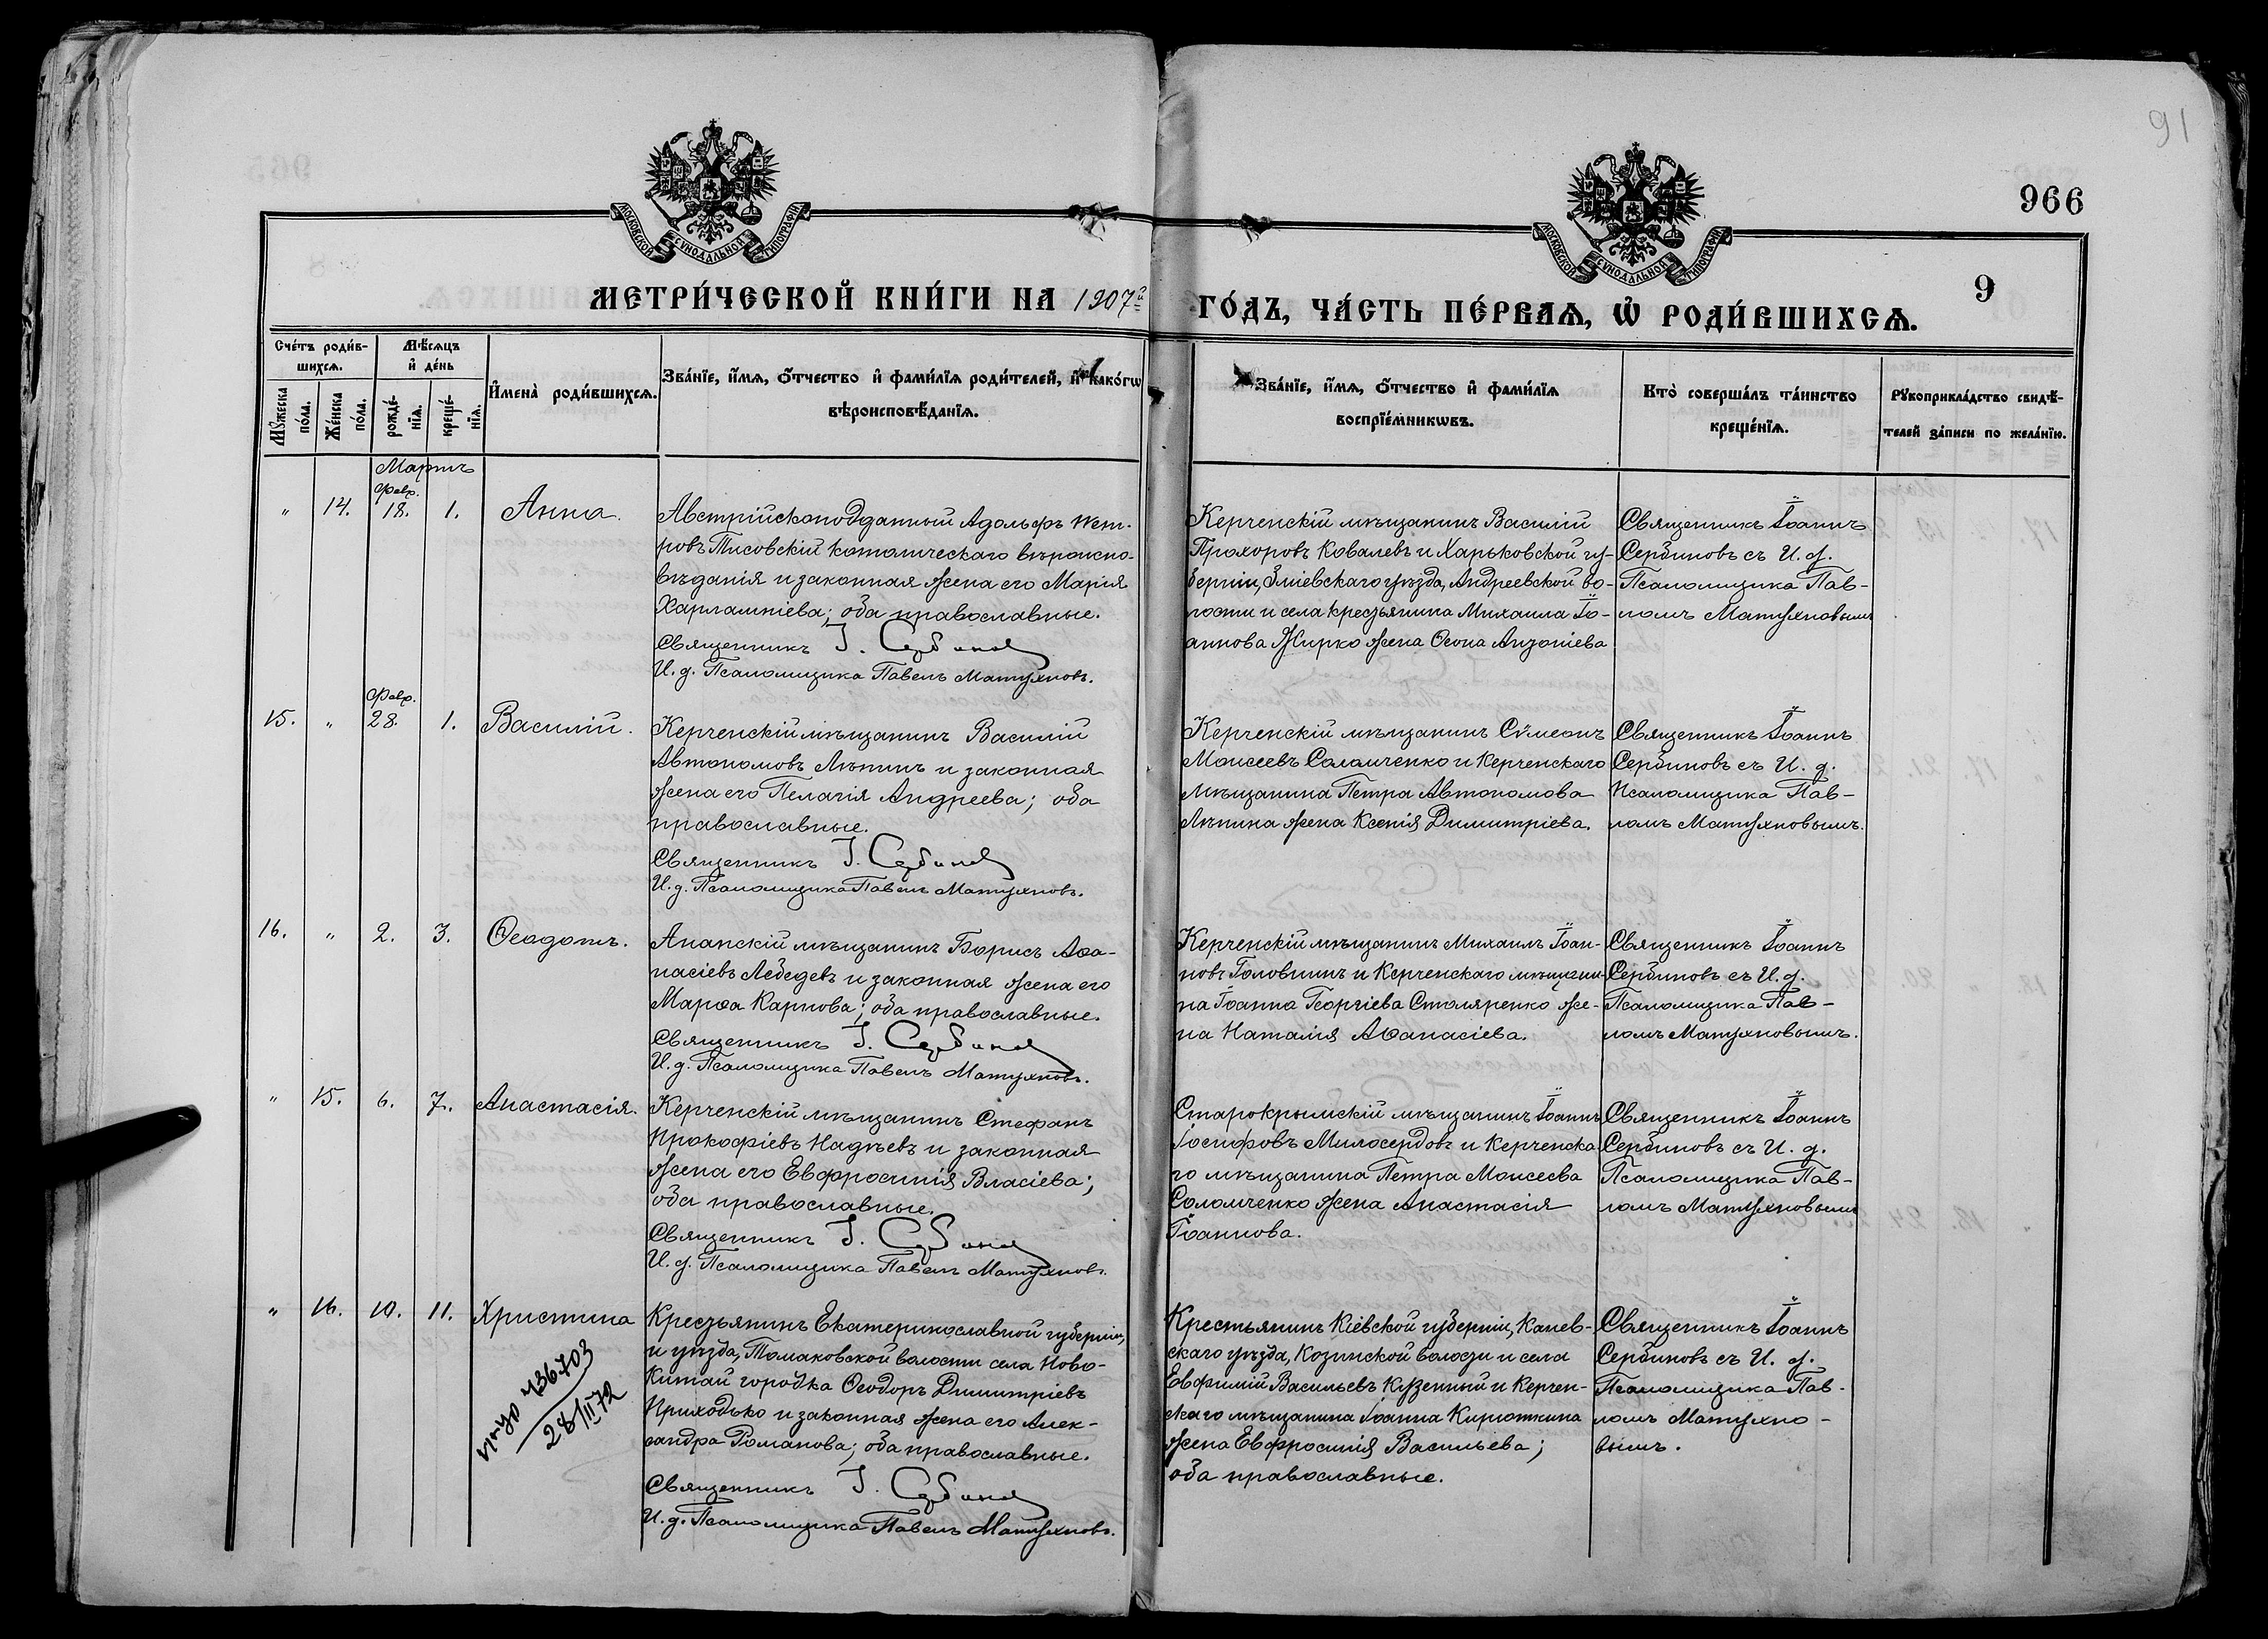 91
966
МОСКОВСКОЙ СУНОДАЛЬНОЙ ТИПОГРАФІИ
МОСКОВСКОЙ СУНОДАЛЬНОЙ ТИПОГРАФІИ
9
МЕТРИ́ЧЕСКОЙ КНИ́ГИ НА 1907й ГО́ДЪ, ЧА́СТЬ ПЕ́РВАѦ, Ѡ҆ РОДИ́ВШИХСѦ.
Сче́тъ роди́в-
шихсѧ.
Мꙋ́жеска по́ла.
Же́нска по́ла.
Мѣ́сѧцъ
и҆ де́нь
рожде́-
нїѧ.
креще́-
нїѧ.
И҆мена̀ роди́вшихсѧ.
Зва́нїе, и҆́мѧ, ѻ҆́тчество и҆ фами́лїѧ роди́телей, и҆ како́гѡ
вѣроисповѣ́данїѧ.
Зва́нїе, и҆́мѧ, ѻ҆́тчество и҆ фами́лїѧ
воспрїе́мникѡвъ.
Кто̀ соверша́лъ та́инство
креще́нїѧ.
Рꙋкоприкла́дство свидѣ́-
телей за́писи по жела́нїю.
Мартъ
Февр.
" 14. 18. 1. Анна.
Австрійскоподданный Адольфъ Пет-
ровъ Тисовскій католическаго вѣроиспо-
вѣданія и законная жена его Марія
Харлампіева; оба православные.
Священникъ І. Сербиновъ
И. д. Псаломщика Павелъ Матухновъ.
Керченскій мѣщанинъ Василій
Прохоровъ Ковалевъ и Харьковской гу-
берніи, Зміевскаго уѣзда, Андреевской во-
лости и села крестьянина Михаила Іо-
аннова Жирко жена Ѳеона Антоніева
Священникъ Іоаннъ
Сербиновъ съ И. д.
Псаломщика Пав-
ломъ Матухновымъ
Февр.
15. " 28. 1. Василій.
Керченскій мѣщанинъ Василій
Автономовъ Лѣпинъ и законная
жена его Пелагія Андреева; оба
православные.
Священникъ І. Сербиновъ
И. д. Псаломщика Павелъ Матухновъ.
Керченскій мѣщанинъ Сѵмеонъ
Моисеевъ Соломченко и Керченскаго
мѣщанина Петра Автономова
Лѣпина жена Ксенія Димитріева.
Священникъ Іоаннъ
Сербиновъ съ И. д.
Псаломщика Пав-
ломъ Матухновымъ.
16. " 2. 3. Ѳеодотъ.
Анапскій мѣщанинъ Борисъ Аѳа-
насіевъ Лебедевъ и законная жена его
Марѳа Карпова; оба православные.
Священникъ І. Сербиновъ
И. д. Псаломщика Павелъ Матухновъ.
Керченскій мѣщанинъ Михаилъ Іоан-
новъ Головшинъ и Керченскаго мѣщани-
на Іоанна Георгіева Столяренко же-
на Наталія Аѳанасіева.
Священникъ Іоаннъ
Сербиновъ съ И. д.
Псаломщика Пав-
ломъ Матухновымъ.
" 15. 6. 7. Анастасія.
Керченскій мѣщанинъ Стефанъ
Прокофіевъ Надѣевъ и законная
жена его Евфросинія Власіева;
оба православные.
Священникъ І. Сербиновъ
И. д. Псаломщика Павелъ Матухновъ.
Старокрымскій мѣщанинъ Іоаннъ
Іосифовъ Милосердовъ и Керченска-
го мѣщанина Петра Моисеева
Соломченко жена Анастасія
Іоаннова.
Священникъ Іоаннъ
Сербиновъ съ И. д.
Псаломщика Пав-
ломъ Матухновымъ
" 16. 10. 11. Христина
436703
28/II 72
Крестьянинъ Екатеринославной губерніи,
и уѣзда, Томаковской волости села Ново-
Китай городка Ѳеодоръ Димитріевъ
Приходько и законная жена его Алек-
сандра Романова; оба православные.
Священникъ І. Сербиновъ
И. д. Псаломщика Павелъ Матухновъ.
Крестьянинъ Кіевской губерніи, Канев-
скаго уѣзда, Козинской волости и села
Евфимій Васильевъ Кузенный и Керчен-
скаго мѣщанина Іоанна Кирюшкина
жена Евфросинія Васильева;
оба православные.
Священникъ Іоаннъ
Сербиновъ съ И. д.
Псаломщика Пав-
ломъ Матухно-
вымъ.